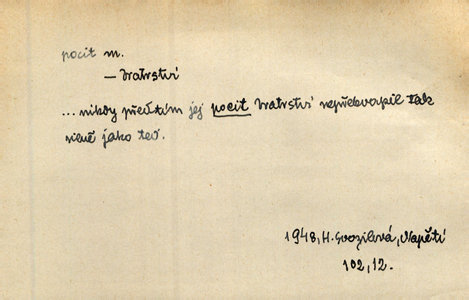 pocit m.
— bratrství
... nikdy předtím jej pocit bratrství nepřekvapil tak
silně jako teď.
1948, H. Gvozilová, Napětí
102, 12.